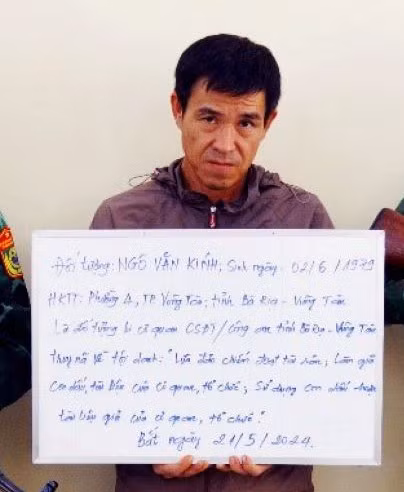 Đối tượng: NGÔ VĂN KÍNH; Sinh ngày: 02/6/1979
HKTT: Phường 4, TP Vũng Tàu, tỉnh Bà Rịa - Vũng Tàu
Là đối tượng bị cơ quan CSĐT/Công an tỉnh Bà Rịa - Vũng Tàu
truy nã về tội danh: "Lừa đảo chiếm đoạt tài sản; Làm giả
con dấu, tài liệu của cơ quan, tổ chức; Sử dụng con dấu hoặc
tài liệu giả của cơ quan, tổ chức".
Bắt ngày 21/5/2024.